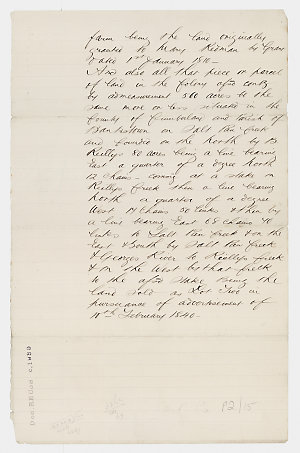 farm being the land originally
granted to Henry Kidman by Grant
dated 1st January 1810 -
And also all that piece or parcel
of land in the Colony afsd contg
by admeasurement 560 acres be the
same more or less situated in the
County of Cumberland and Parish of
Bankstown on Salt Pan Creek
and bounded on the North by
Reillys 80 acres being a line bearing
East a quarter of a degree North
12 chains coming at a Stake on
Reillys Creek then a line bearing
North a quarter of a degree
West 14 Chains 50 links & then by
a line bearing East 68 chains
links to Salt Pan Creek & on the
East & South by Salt Pan Creek
& Georges River to Reillys Creek
& on the West by that Creek
to the afsd Stake Being the
land Sold as Lot Two in
pursuance of advertisement of
February 1840 -
P2/15